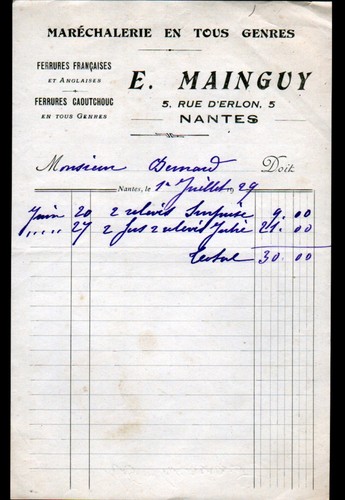 MARÉCHALERIE EN TOUS GENRES
FERRURES FRANÇAISES
ET ANGLAISES
FERRURES CAOUTCHOUC
EN TOUS GENRES
E. MAINGUY
5, RUE D'ERLON, 5
NANTES
Monsieur Bernard Doit
Nantes, le 1er Juillet 1929
Juin 20 2 relevés 9.00
" 27 2 fers 2 relevés Julie 21.00
Total 30.00